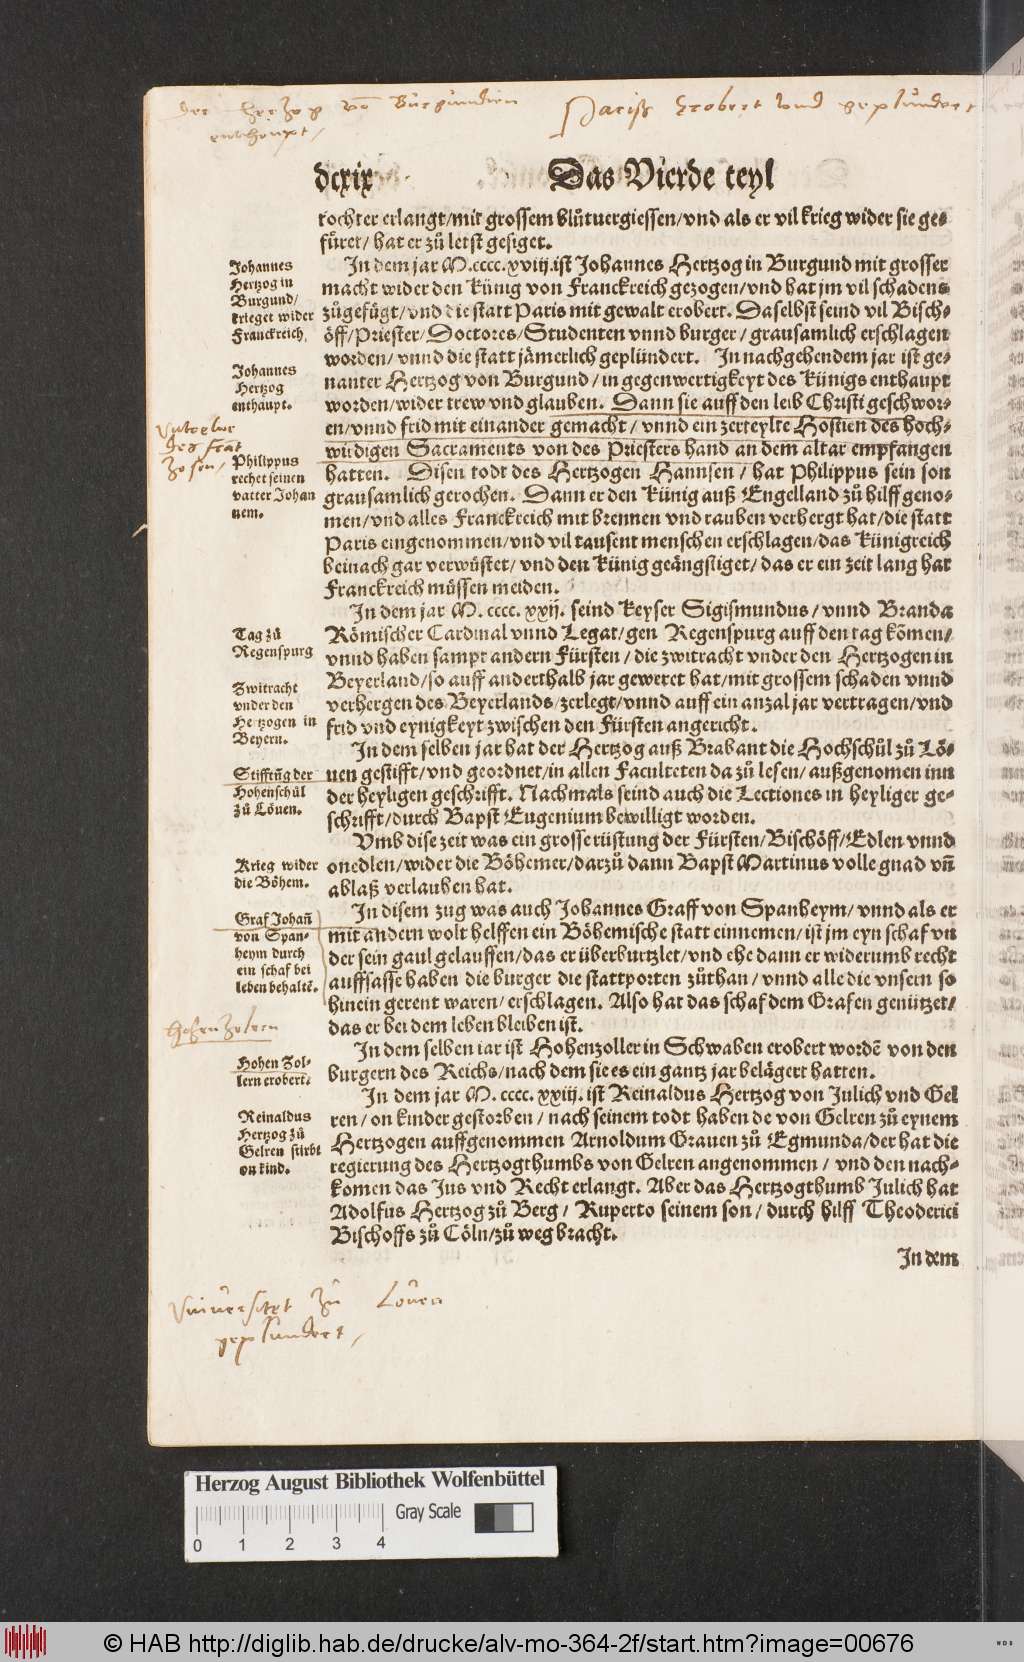 der hertzog vō Burgundien
enthaupt/
Pariß Erobert vnd geplundert
dcxix
Das Vierde teyl
tochter erlangt/mit grossem blůtuergiessen/vnd als er vil krieg wider sie ge⸗
fůret/hat er zů letst gesiget.
Johannes
Hertzog in
Burgund/
krieget wider
Franckreich.
In dem jar M.cccc.xviij.ist Johannes Hertzog in Burgund mit grosser
macht wider den Künig von Franckreich gezogen/vnd hat jm vil schadens
zůgefügt/vnd die statt Paris mit gewalt erobert. Daselbst seind vil Bisch⸗
öff/Priester/Doctores/Studenten vnnd burger/grausamlich erschlagen
worden/vnnd die statt jämerlich geplündert. In nachgehendem jar ist ge⸗
Johannes
Hertzog
enthaupt.
nanter Hertzog von Burgund/in gegenwertigkeyt des Künigs enthaupt
worden/wider trew vnd glauben. Dann sie auff den leib Christi geschwor⸗
en/vnnd frid mit einander gemacht/vnnd ein zerteylte Hostien des hoch⸗
wirdigen Sacraments von des Priesters hand an dem altar empfangen
Philippus
rechet seinen
vatter Johan
nem.
hatten. Disen todt des Hertzogen Hannsen/hat Philippus sein son
grausamlich gerochen. Dann er den Künig auß Engelland zů hilff geno⸗
men/vnd alles Franckreich mit brennen vnd rauben verhergt hat/die statt
Paris eingenommen/vnd vil tausent menschen erschlagen/das Künigreich
beinach gar verwüstet/vnd den Künig geängstiget/das er ein zeit lang hat
Franckreich müssen meiden.
In dem jar M.cccc.xxij. seind Keyser Sigismundus/vnnd Branda
Tag zů
Regenspurg
Römischer Cardinal vnnd Legat/gen Regenspurg auff den tag kōmen/
vnnd haben sampt andern Fürsten/die zwitracht vnder den Hertzogen in
Zwitracht
vnder den
Hertzogen in
Beyern.
Beyerland/so auff anderthalb jar geweret hat/mit grossem schaden vnnd
verhergen des Beyerlands/zerlegt/vnnd auff ein anzal jar vertragen/vnd
frid vnd eynigkeyt zwischen den Fürsten angericht.
In dem selben jar hat der Hertzog auß Brabant die Hochschůl zů Lö⸗
Stifftūg der
Hohenschůl
zů Löuen.
uen gestifft/vnd geordnet/in allen Faculteten da zů lesen/außgenomen inn
der heyligen geschrifft. Nachmals seind auch die Lectiones in heyliger ge⸗
schrifft/durch Bapst Eugenium bewilligt worden.
Vmb dise zeit was ein grosse rüstung der Fürsten/Bischöff/Edlen vnnd
Krieg wider
die Böhem.
onedlen/wider die Böhemer/darzů dann Bapst Martinus volle gnad vñ
ablaß verlauben hat.
Graf Johañ
von Span⸗
heym durch
ein schaf bei
leben behaltē.
In disem zug was auch Johannes Graff von Spanheym/vnnd als er
mit andern wolt helffen ein Böhemische statt einnemen/ist jm eyn schaf vn
der sein gaul gelauffen/das er überburtzlet/vnd ehe dann er widerumb recht
auffsasse haben die burger die stattporten zůthan/vnnd alle die vnsern so
hinein gerent waren/erschlagen. Also hat das schaf dem Grafen genützet/
das er bei dem leben bleiben ist.
Hohenzolern
Hohen Zol⸗
lern erobert.
In dem selben iar ist Hohenzoller in Schwaben erobert wordē von den
burgern des Reichs/nach dem sie es ein gantz jar belägert hatten.
Reinaldus
Hertzog zů
Gelren stirbt
on kind.
In dem jar M.cccc.xxiij.ist Reinaldus Hertzog von Julich vnd Gel
ren/on kinder gestorben/nach seinem todt haben de von Gelren zů eynem
Hertzogen auffgenommen Arnoldum Grauen zů Egmunda/der hat die
regierung des Hertzogthumbs von Gelren angenommen/vnd den nach⸗
komen das Jus vnd Recht erlangt. Aber das Hertzogthumb Julich hat
Adolfus Hertzog zů Berg/Ruperto seinem son/durch hilff Theoderici
Bischoffs zů Cöln/zů weg bracht.
In dem
Vniuersitet zu Louen
geplundert/
Herzog August Bibliothek Wolfenbüttel
Gray Scale
0 1 2 3 4
© HAB http://diglib.hab.de/drucke/alv-mo-364-2f/start.htm?image=00676